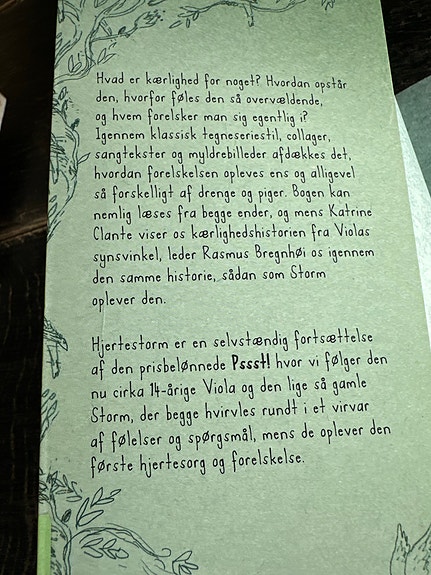 Hvad er kærlighed for noget? Hvordan opstår
den, hvorfor føles den så overvældende,
og hvem forelsker man sig egentlig i?
Igennem klassisk tegneseriestil, collager,
sangtekster og myldrebilleder afdækkes det,
hvordan forelskelsen opleves ens og alligevel
så forskelligt af drenge og piger. Bogen kan
nemlig læses fra begge ender, og mens Katrine
Clante viser os kærlighedshistorien fra Violas
synsvinkel, leder Rasmus Bregnhøi os igennem
den samme historie, sådan som Storm
oplever den.
Hjertestorm er en selvstændig fortsættelse
af den prisbelønnede Pssst! hvor vi følger den
nu cirka 14-årige Viola og den lige så gamle
Storm, der begge hvirvles rundt i et virvar
af følelser og spørgsmål, mens de oplever den
første hjertesorg og forelskelse.